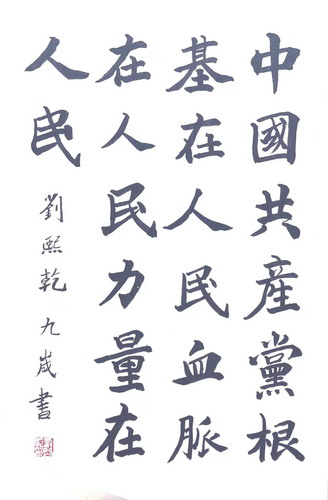 中國共産黨根
基在人民血脈
在人民力量在
人民
劉熙乾九歲書